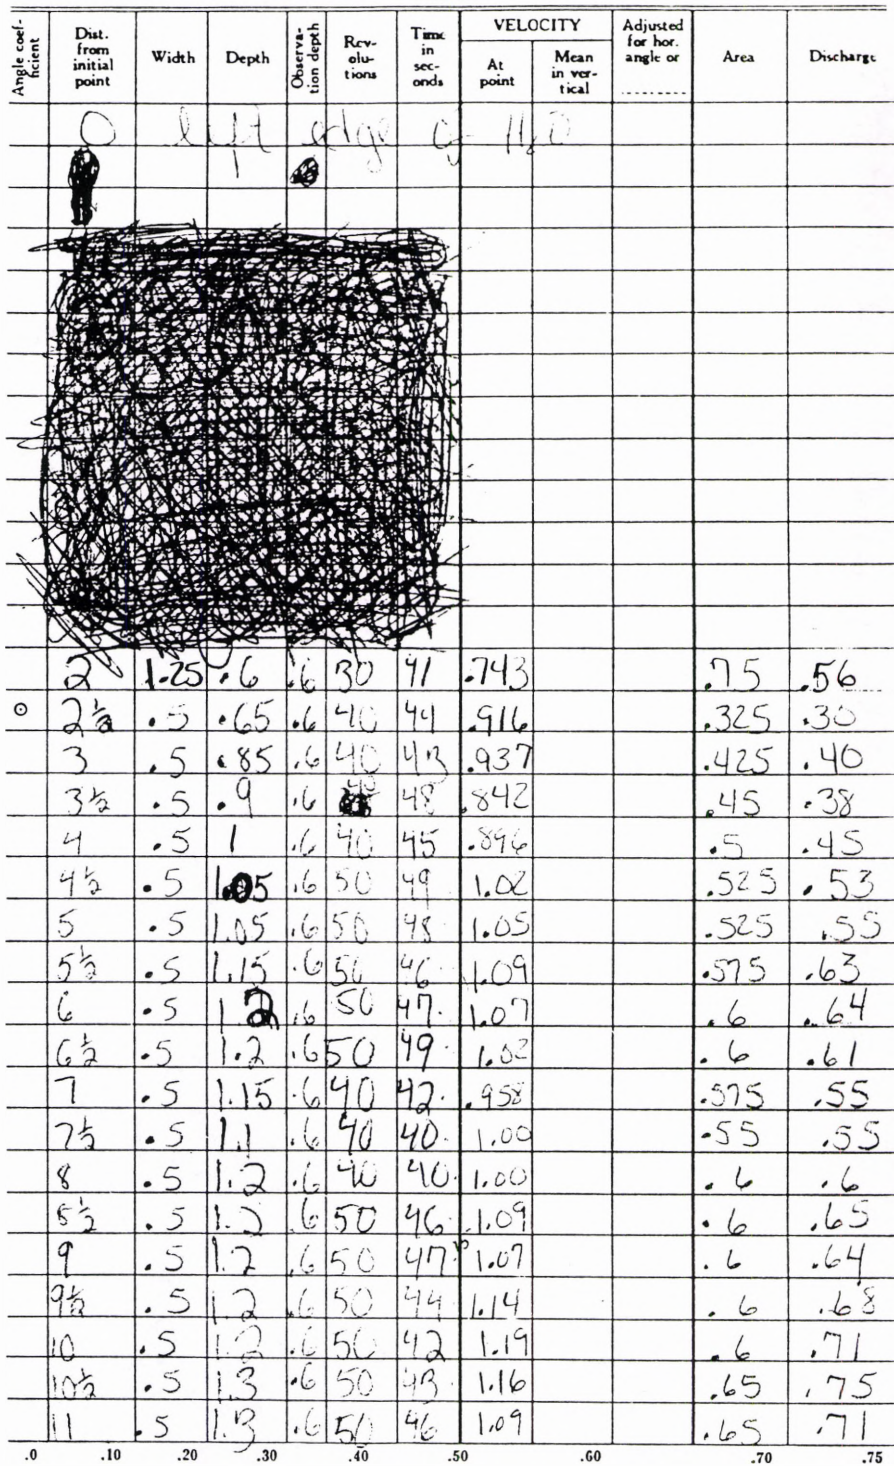 Angle coef-ficient Dist. from initial point Width Depth Observa-tion depth Rev-olu-tions Time in sec-onds VELOCITY At point Mean in ver-tical Adjusted for hor. angle or ........ Area Discharge
0 left edge of H20
2 1.25 .6 .6 30 41 .743 .75 .56
⊙ 2½ .5 .65 .6 40 44 .916 .325 .30
3 .5 .85 .6 40 43 .937 .425 .40
3½ .5 .9 .6 40 48 .842 .45 .38
4 .5 1 .6 40 45 .896 .5 .45
4½ .5 1.05 .6 50 49 1.02 .525 .53
5 .5 1.05 .6 50 48 1.05 .525 .55
5½ .5 1.15 .6 50 46 1.09 .575 .63
6 .5 1.2 .6 50 47 1.07 .6 .64
6½ .5 1.2 .6 50 49 1.02 .6 .61
7 .5 1.15 .6 40 42 .958 .575 .55
7½ .5 1.1 .6 40 40 1.00 .55 .55
8 .5 1.2 .6 40 40 1.00 .6 .6
8½ .5 1.2 .6 50 46 1.09 .6 .65
9 .5 1.2 .6 50 47 1.07 .6 .64
9½ .5 1.2 .6 50 44 1.14 .6 .68
10 .5 1.2 .6 50 42 1.19 .6 .71
10½ .5 1.3 .6 50 43 1.16 .65 .75
11 .5 1.3 .6 50 46 1.09 .65 .71
.0 .10 .20 .30 .40 .50 .60 .70 .75